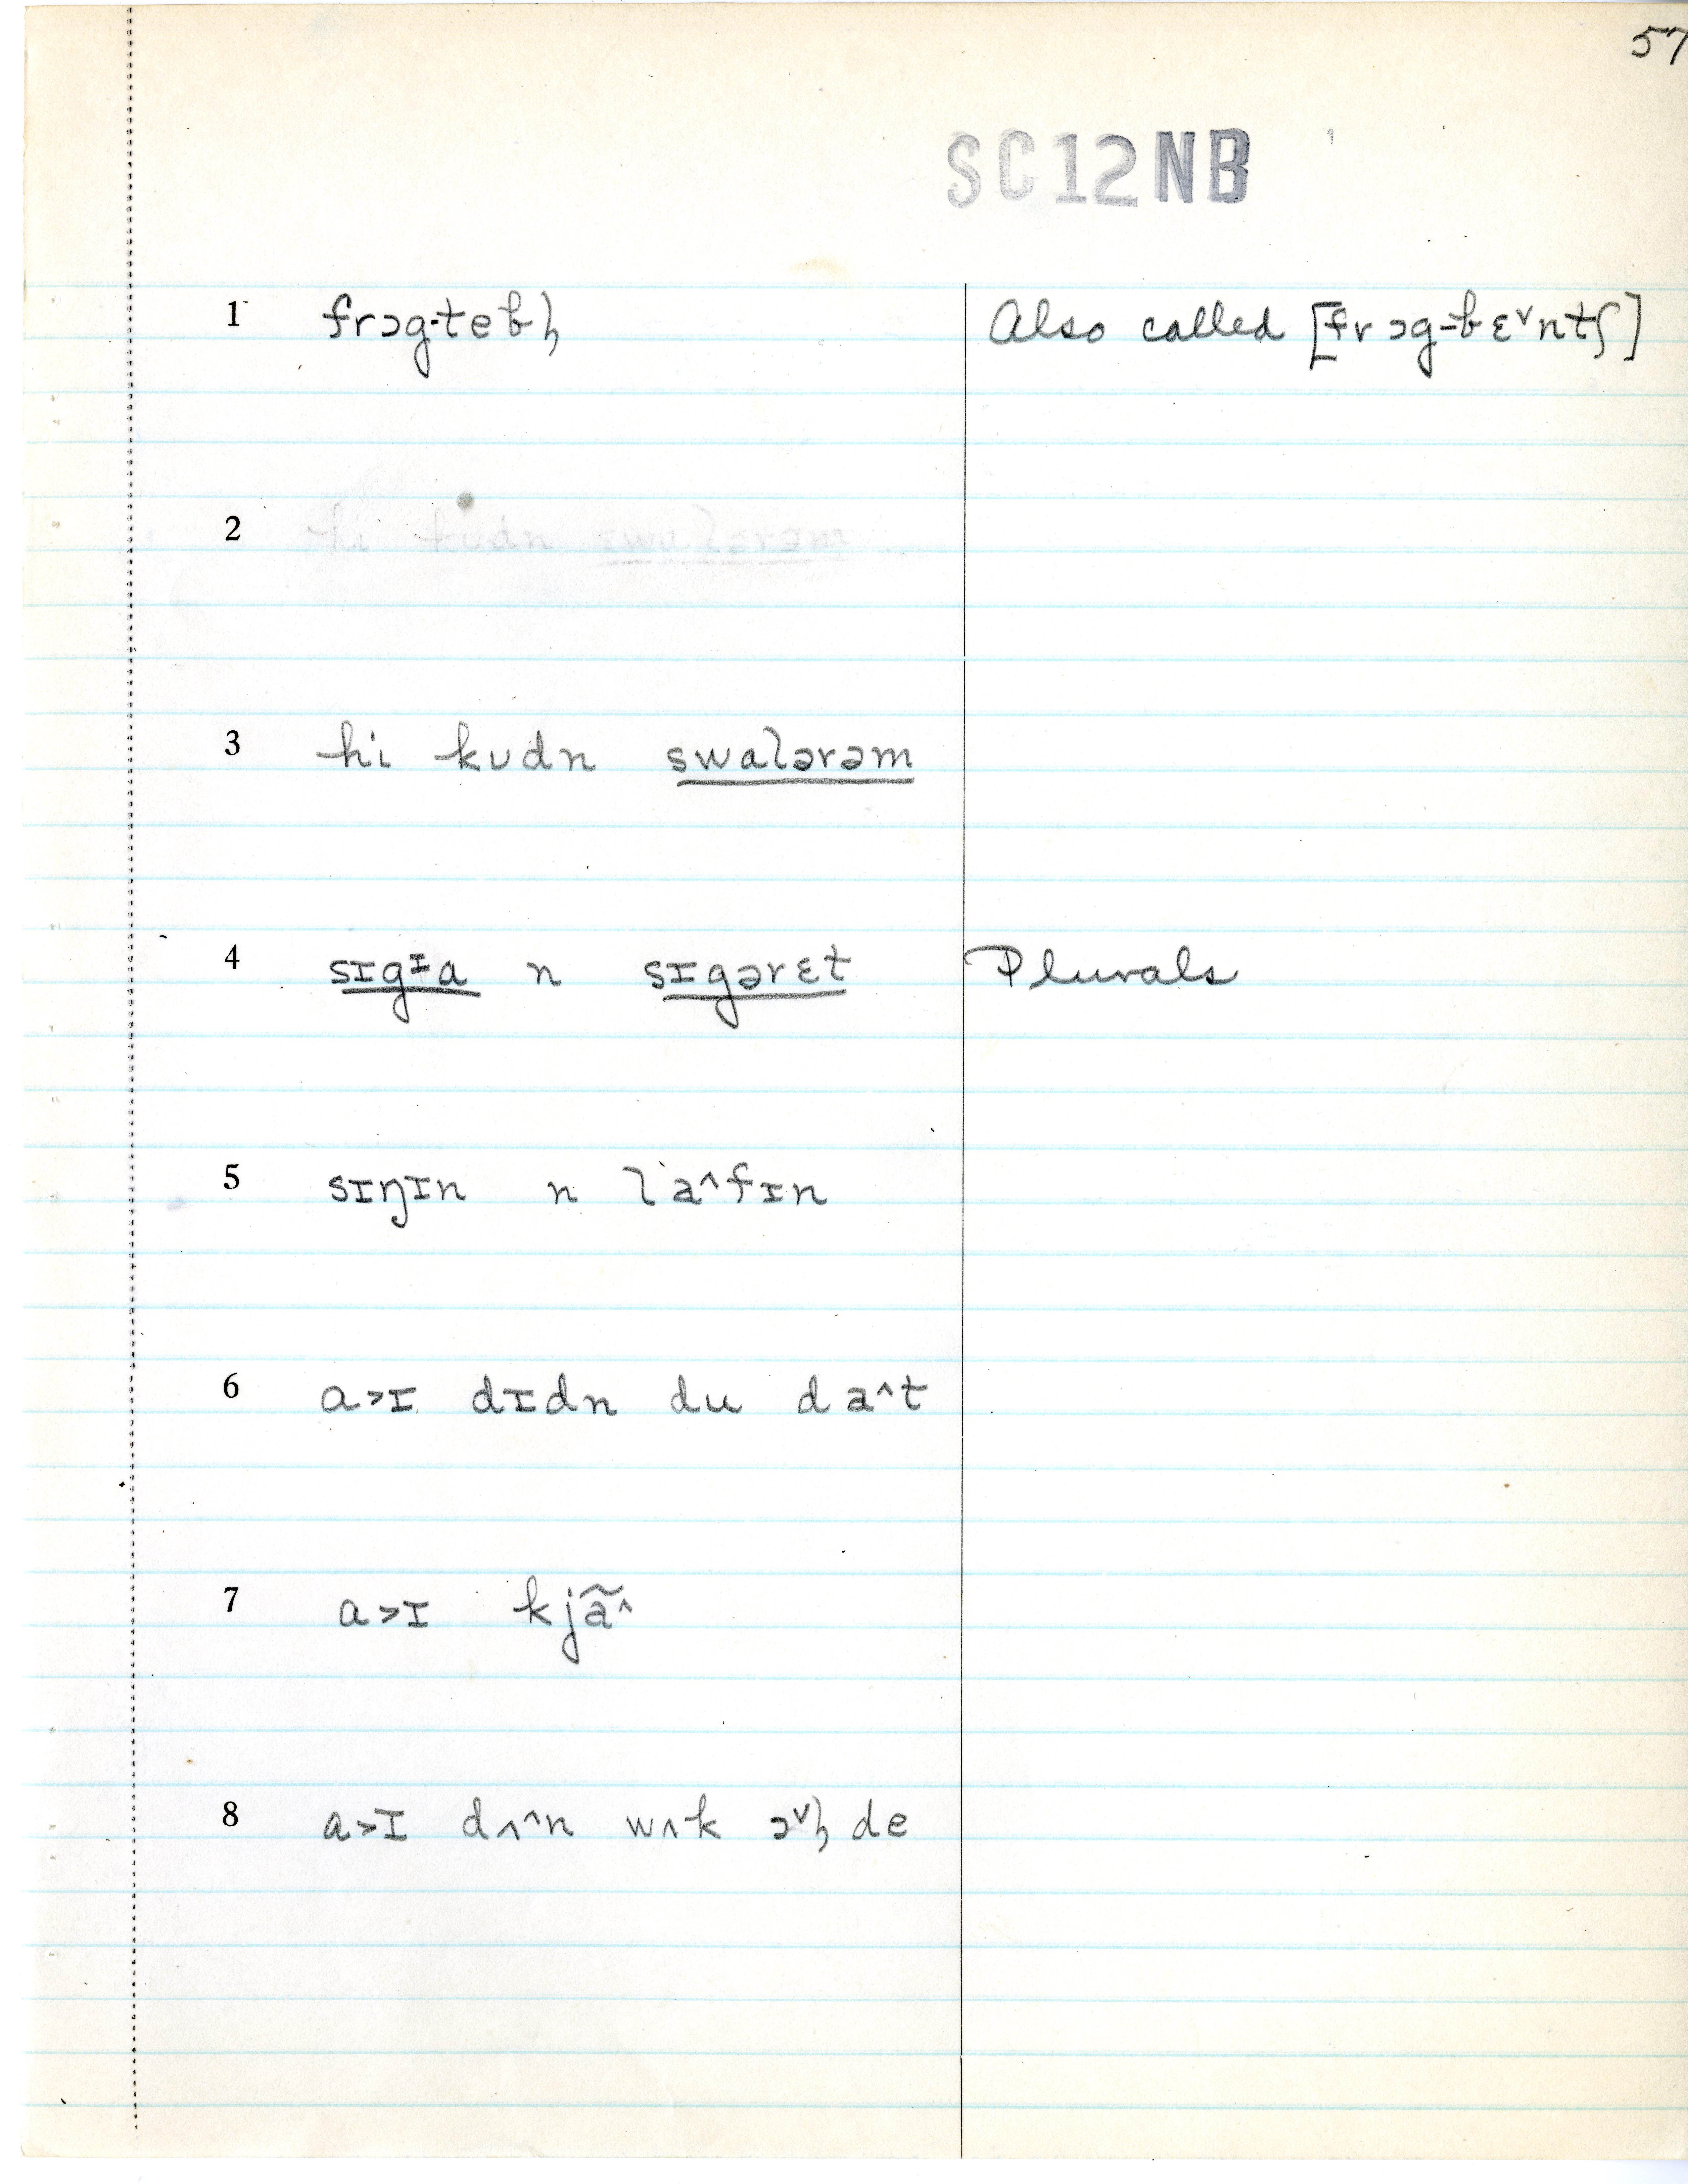 57
SC12NB
1 frɔg-tebl̩ Also called [frɔg-bɛ˅ntʃ]
2 hi kʊdn swalərəm
3 hi kʊdn swalərəm
4 sɪgɪa n sɪgərɛt Plurals
5 sɪŋɪn n la˄fɪn
6 a˃ɪ dɪdn du da˄t
7 a˃ɪ kjã˄
8 a˃ɪ dʌ˄n wʌk ɔ˅l̩ de